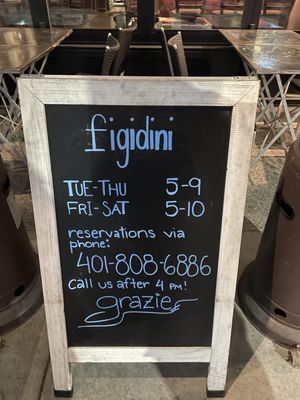 figidini
TUE-THU 5-9
FRI-SAT 5-10
reservations via
phone:
401-808-6886
Call us after 4 PM!
grazie